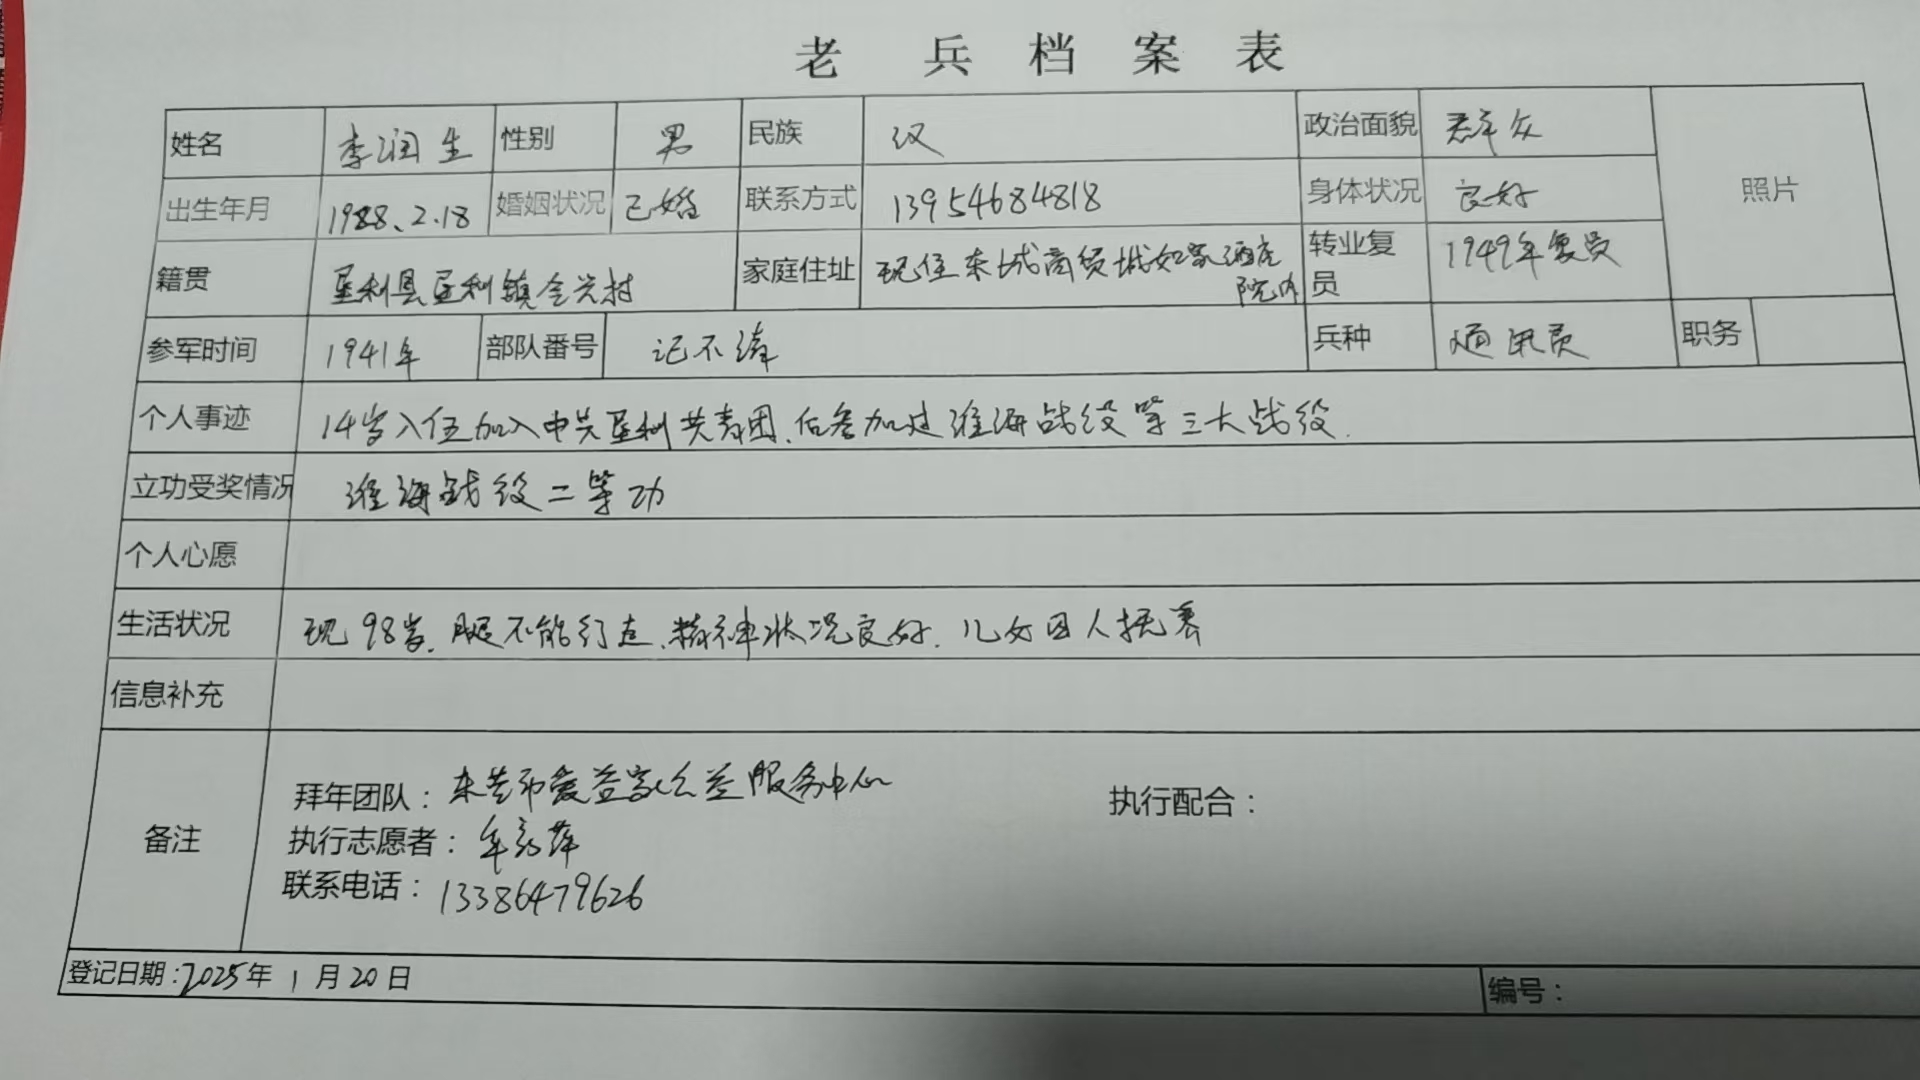 老兵档案表
姓名 李润生 性别 男 民族 汉 政治面貌 群众
出生年月 1988、2.18 婚姻状况 已婚 联系方式 13954684818 身体状况 良好 照片
籍贯 垦利县垦利镇合兴村 家庭住址 现住东城商贸城如家酒店院内 转业复员 1949年复员
参军时间 1941年 部队番号 记不清 兵种 通讯员 职务
个人事迹 14岁入伍加入中共垦利共青团、后参加过淮海战役等三大战役.
立功受奖情况 淮海战役二等功
个人心愿
生活状况 现98岁.腿不能行走、精神状况良好.儿女四人抚养
信息补充
备注
拜年团队：东营市爱益家公益服务中心 执行配合：
执行志愿者：牟
联系电话：13386479626
登记日期：2025年1月20日 编号：